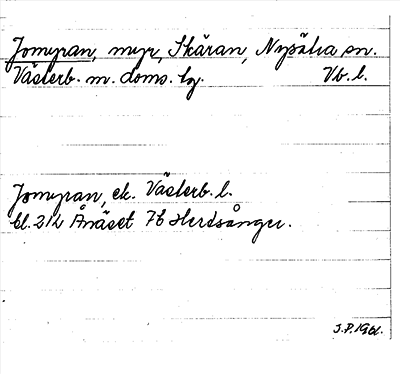 Jomyran, myr, Skäran, Nysätra sn.
Västerb. m. doms. tg. Vb. l.
Jomyran, ek. Västerb. l.
bl. 212 Ånäset 7b Herdsånger.
J.P. 1961.